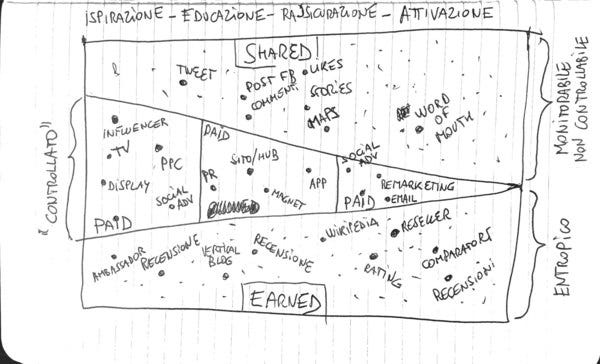 ISPIRAZIONE - EDUCAZIONE - RASSICURAZIONE - ATTIVAZIONE
SHARED
TWEET
POST FB
COMMENTI
LIKES
STORIES
MAPS
WORD
OF
MOUTH
MONITORABILE
NON CONTROLLABILE
"CONTROLLATO"
INFLUENCER
TV
PPC
DISPLAY
SOCIAL
ADV
PAID
PAID
SITO/HUB
PR
MAGNET
APP
SOCIAL
ADV
REMARKETING
EMAIL
PAID
AMBASSADOR
RECENSIONE
VERTICAL
BLOG
RECENSIONE
WIKIPEDIA
RESELLER
RATING
COMPARATORI
RECENSIONI
EARNED
ENTROPICO